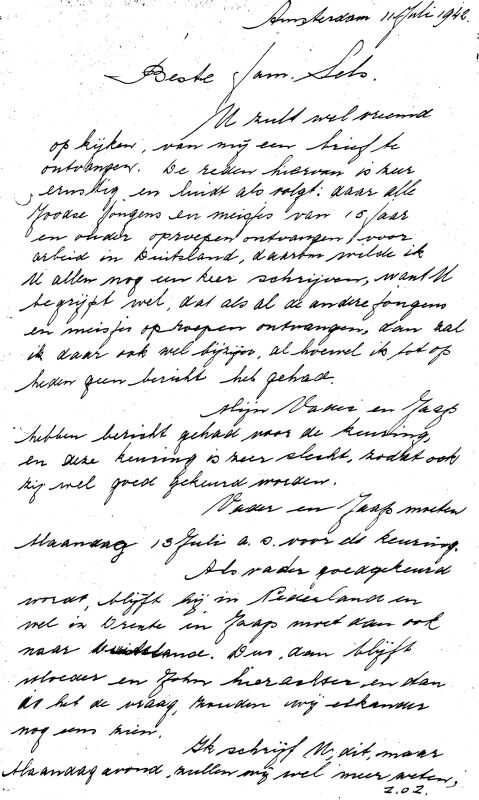 Amsterdam 11 Juli 1942.
Beste Fam. Sels.
U zult wel vreemd
op kijken, van mij een brief te
ontvangen. De reden hiervan is zeer
ernstig en luidt als volgt: daar alle
Joodse Jongens en meisjes van 15 jaar
en ouder oproepen ontvangen voor
arbeid in Duitsland, daarom wilde ik
U allen nog een keer schrijven, want U
begrijpt wel, dat als al de andere Jongens
en meisjes op roepen ontvangen, dan zal
ik daar ook wel bijzijn, al hoewel ik tot op
heden geen bericht heb gehad.
Mijn Vader en Jaap
hebben bericht gehad voor de keuring,
en deze keuring is zeer slecht, zodat ook
zij wel goed gekeurd worden.
Vader en Jaap moeten
Maandag 13 Juli a.s. voor de keuring.
Als vader goedgekeurd
wordt, blijft hij in Nederland en
wel in Drente en Jaap moet dan ook
naar Duitslande. Dus, dan blijft
Moeder en John hierachter en dan
is het de vraag, zouden wij elkander
nog eens zien.
Ik schrijf U, dit, maar
Maandag avond, zullen wij wel meer weten;
z.o.z.